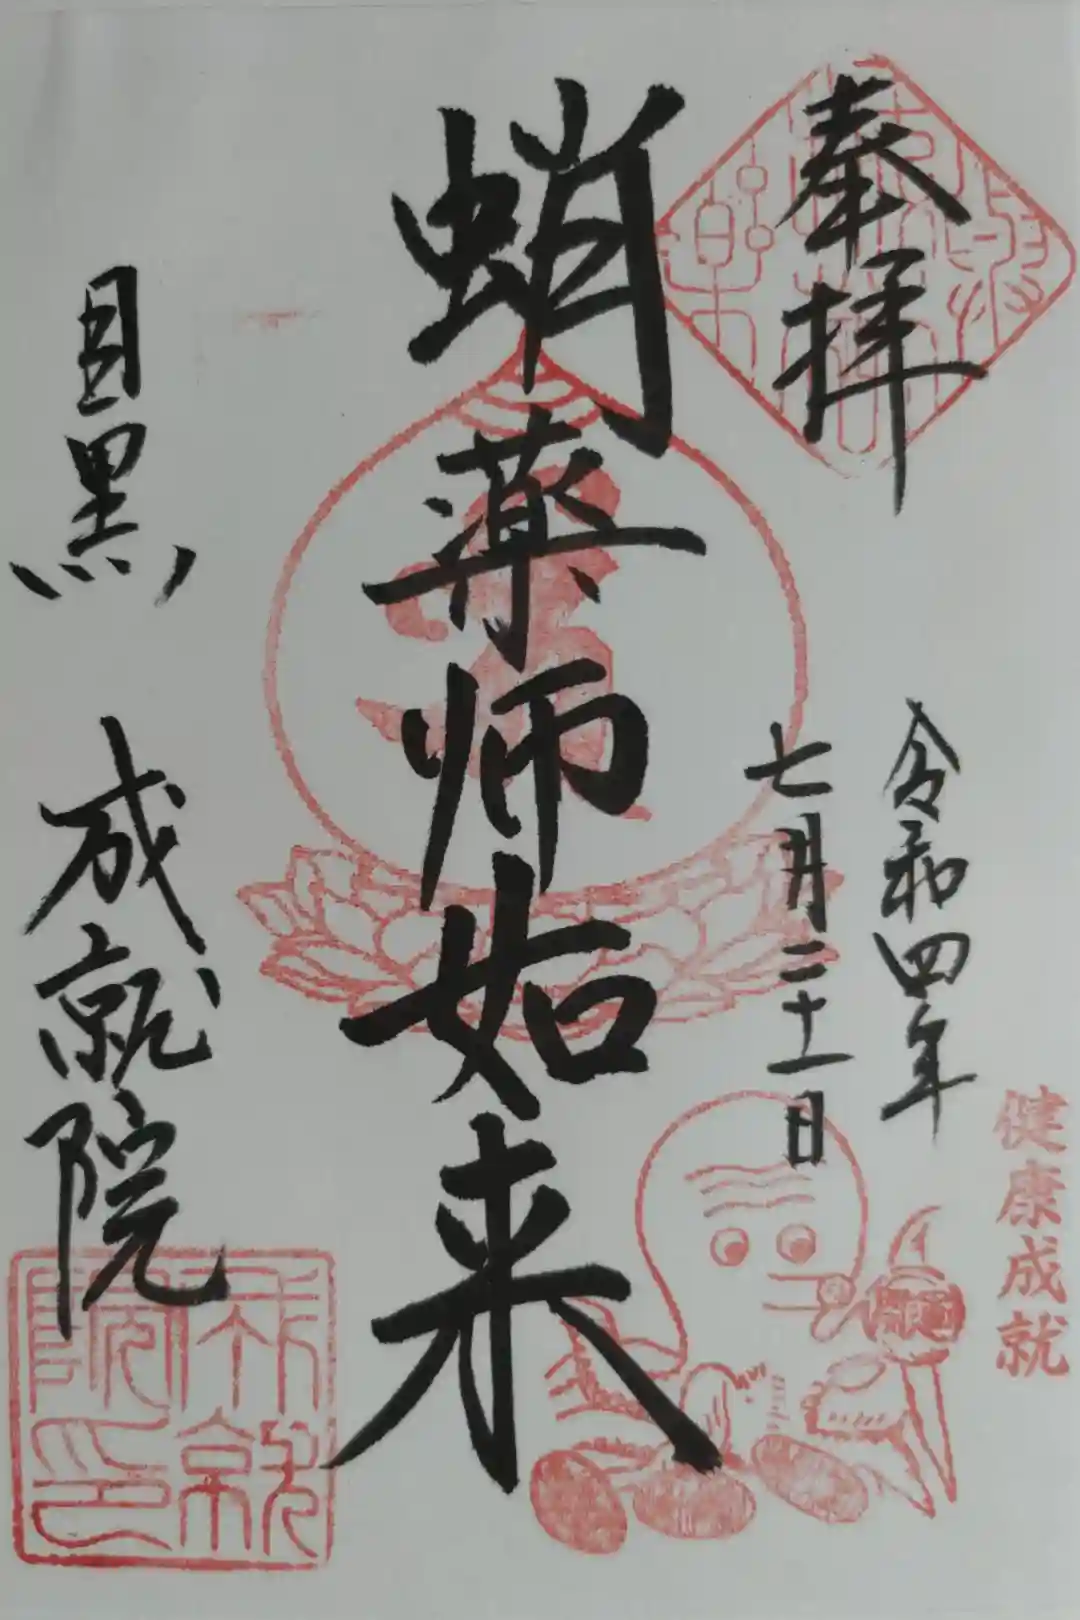 奉拝
健康成就
令和四年
七月二十一日
蛸薬师如来
目黒 成就院
成就院印